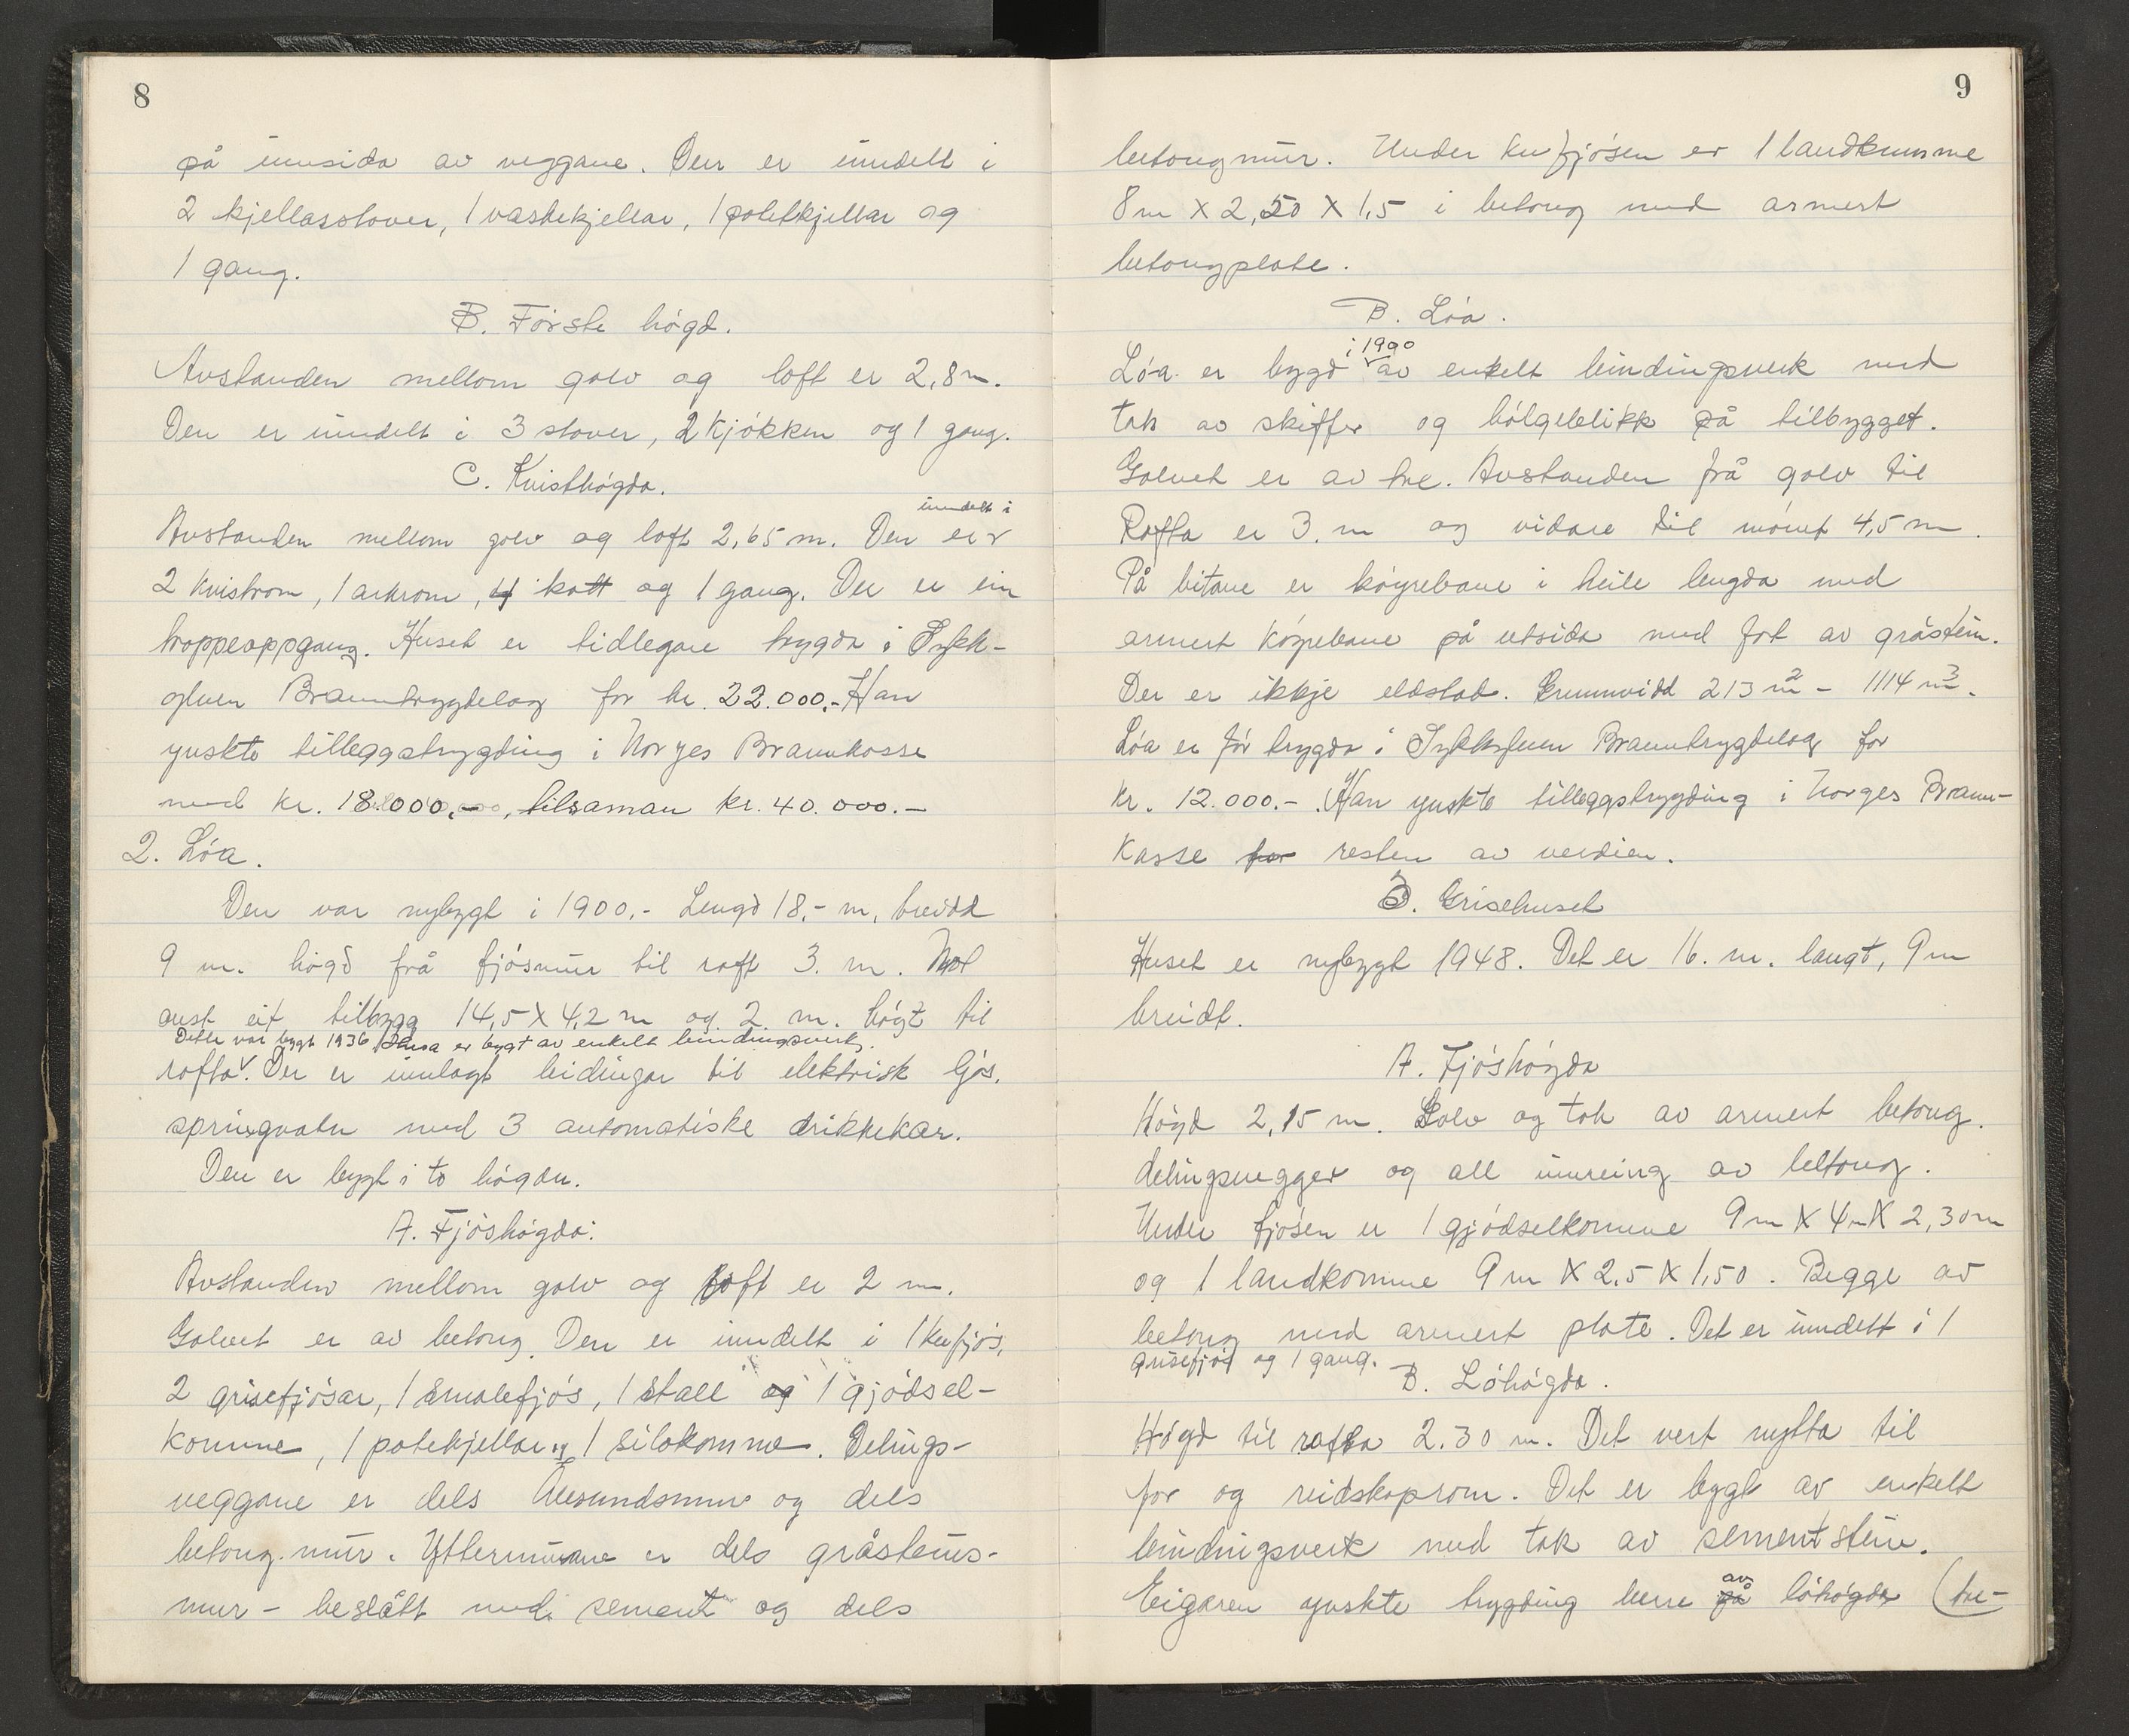 8
på innsida av veggane. Den er inndelt i
2 kjellarstover, 1 vaskekjellar, 1 potetkjellar og
1 gang.
B. Förste högd.
Avstanden mellom golv og loft er 2,8 m.
Den er inndelt i 3 stover, 2 kjökken og 1 gang.
C. Kvisthögda.
inndelt i
Avstanden mellom golv og loft 2,65 m. Den er
2 kvistrom, 1 arkrom, 4 kott og 1 gang. Der er ein
troppeoppgang. Huset er tidlegare trygda i Sykk-
ylven Branntrygdelag for kr. 22.000,- Han
ynskte tilleggstrygding i Norges Brannkasse
med kr. 18.000,-, tilsaman kr. 40.000.-
2. Löa.
Den var nybygt i 1900.- Lengd 18,- m, breidd
9 m. högd frå fjösmur til raft 3. m. Mot
aust eit tilbygg 14,5 X 4,2 m og 2 m. högt til
Dette var bygt 1936. Løa er bygt av enkelt bindingsverk.
rafta. Der er innlagt leidingar til elektrisk ljos,
springvatn med 3 automatiske drikkekar.
Den er bygt i to högder.
A. Fjöshögda:
Avstanden mellom golv og loft er 2 m.
Golvet er av betong. Den er inndelt i 1 kufjös,
2 grisefjösar, 1 smalefjös, 1 stall og 1 gjödsel-
komme, 1 potekjellar og 1 silokomme. Delings-
veggane er dels Ålesundsmur og dels
betong.mur. Yttermurane er dels gråsteins-
mur - beslått med sement og dels
9
betongmur. Under kufjösen er 1 landkumme
8 m X 2,50 X 1,5 i betong med armert
betongplate.
B. Löa.
i 1900
Löa er bygd av enkelt bindingsverk med
tak av skiffer og bölgeblikk på tilbygget.
Golvet er av tre. Avstanden frå golv til
Rafta er 3. m og vidare til mönet 4,5 m.
På bitane er köyrebane i heile lengda med
armert köyrebane på utsida med fot av gråstein.
Der er ikkje eldstad. Grunnvidd 213 m² - 1114 m³.
Löa er för trygda i Sykkylven Branntrygdelag for
kr. 12.000.- Han ynskte tilleggstrygding i Norges Brann-
kasse for resten av verdien.
3. Grisehuset
Huset er nybygt 1948. Det er 16. m. langt, 9 m
breidt.
A. Fjöshögda
Högd 2,15 m. Golv og tak av armert betong.
delingsvegger og all innreiing av betong.
Under fjösen er 1 gjödselkomme 9 m X 4 m X 2,30 m
og 1 landkomme 9 m X 2,5 X 1,50. Begge av
betong med armert plate. Det er inndelt i 1
grisefjös og 1 gang.
B. Löhögda.
Högd til rafta 2.30 m. Det vert nytta til
for og reidskaprom. Det er bygt av enkelt
bindingsverk med tak av sementstein.
av
Eigaren ynskte trygding berre på löhögda (tre-